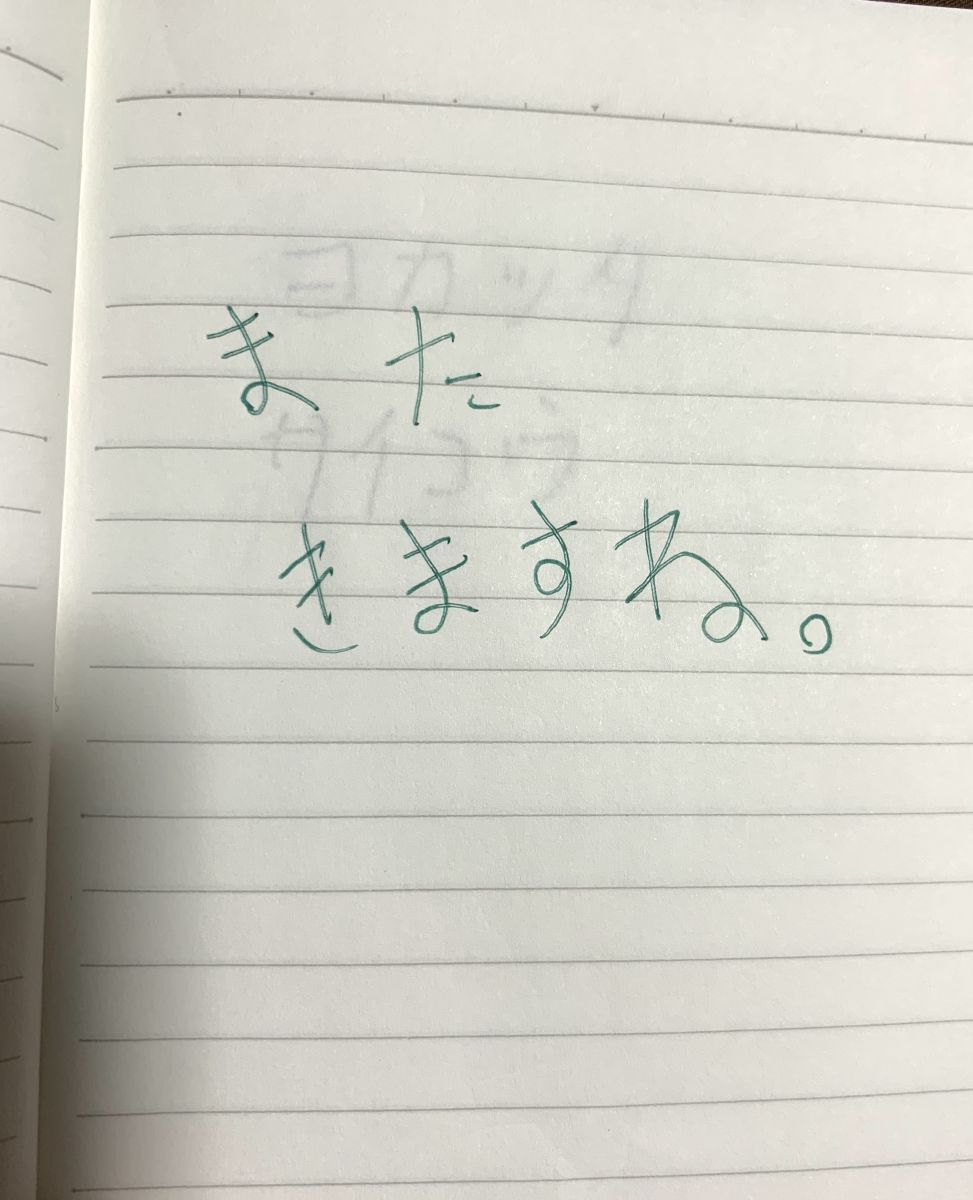 また
きますね。